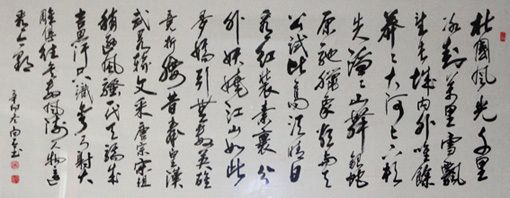 北國風光千里
冰封萬里雪飄
望長城内外惟餘
莽莽大河上下頓
失滔滔山舞銀蛇
原馳臘象欲與天
公試比高須晴日
看紅裝素裹分
外妖嬈江山如此
多嬌引無數英雄
竞折腰昔秦皇漢
武略輸文采唐宗宋祖
稍遜風騷一代天驕成
吉思汗只識彎弓射大
雕俱往矣數風流人物還
看今朝
辛卯冬